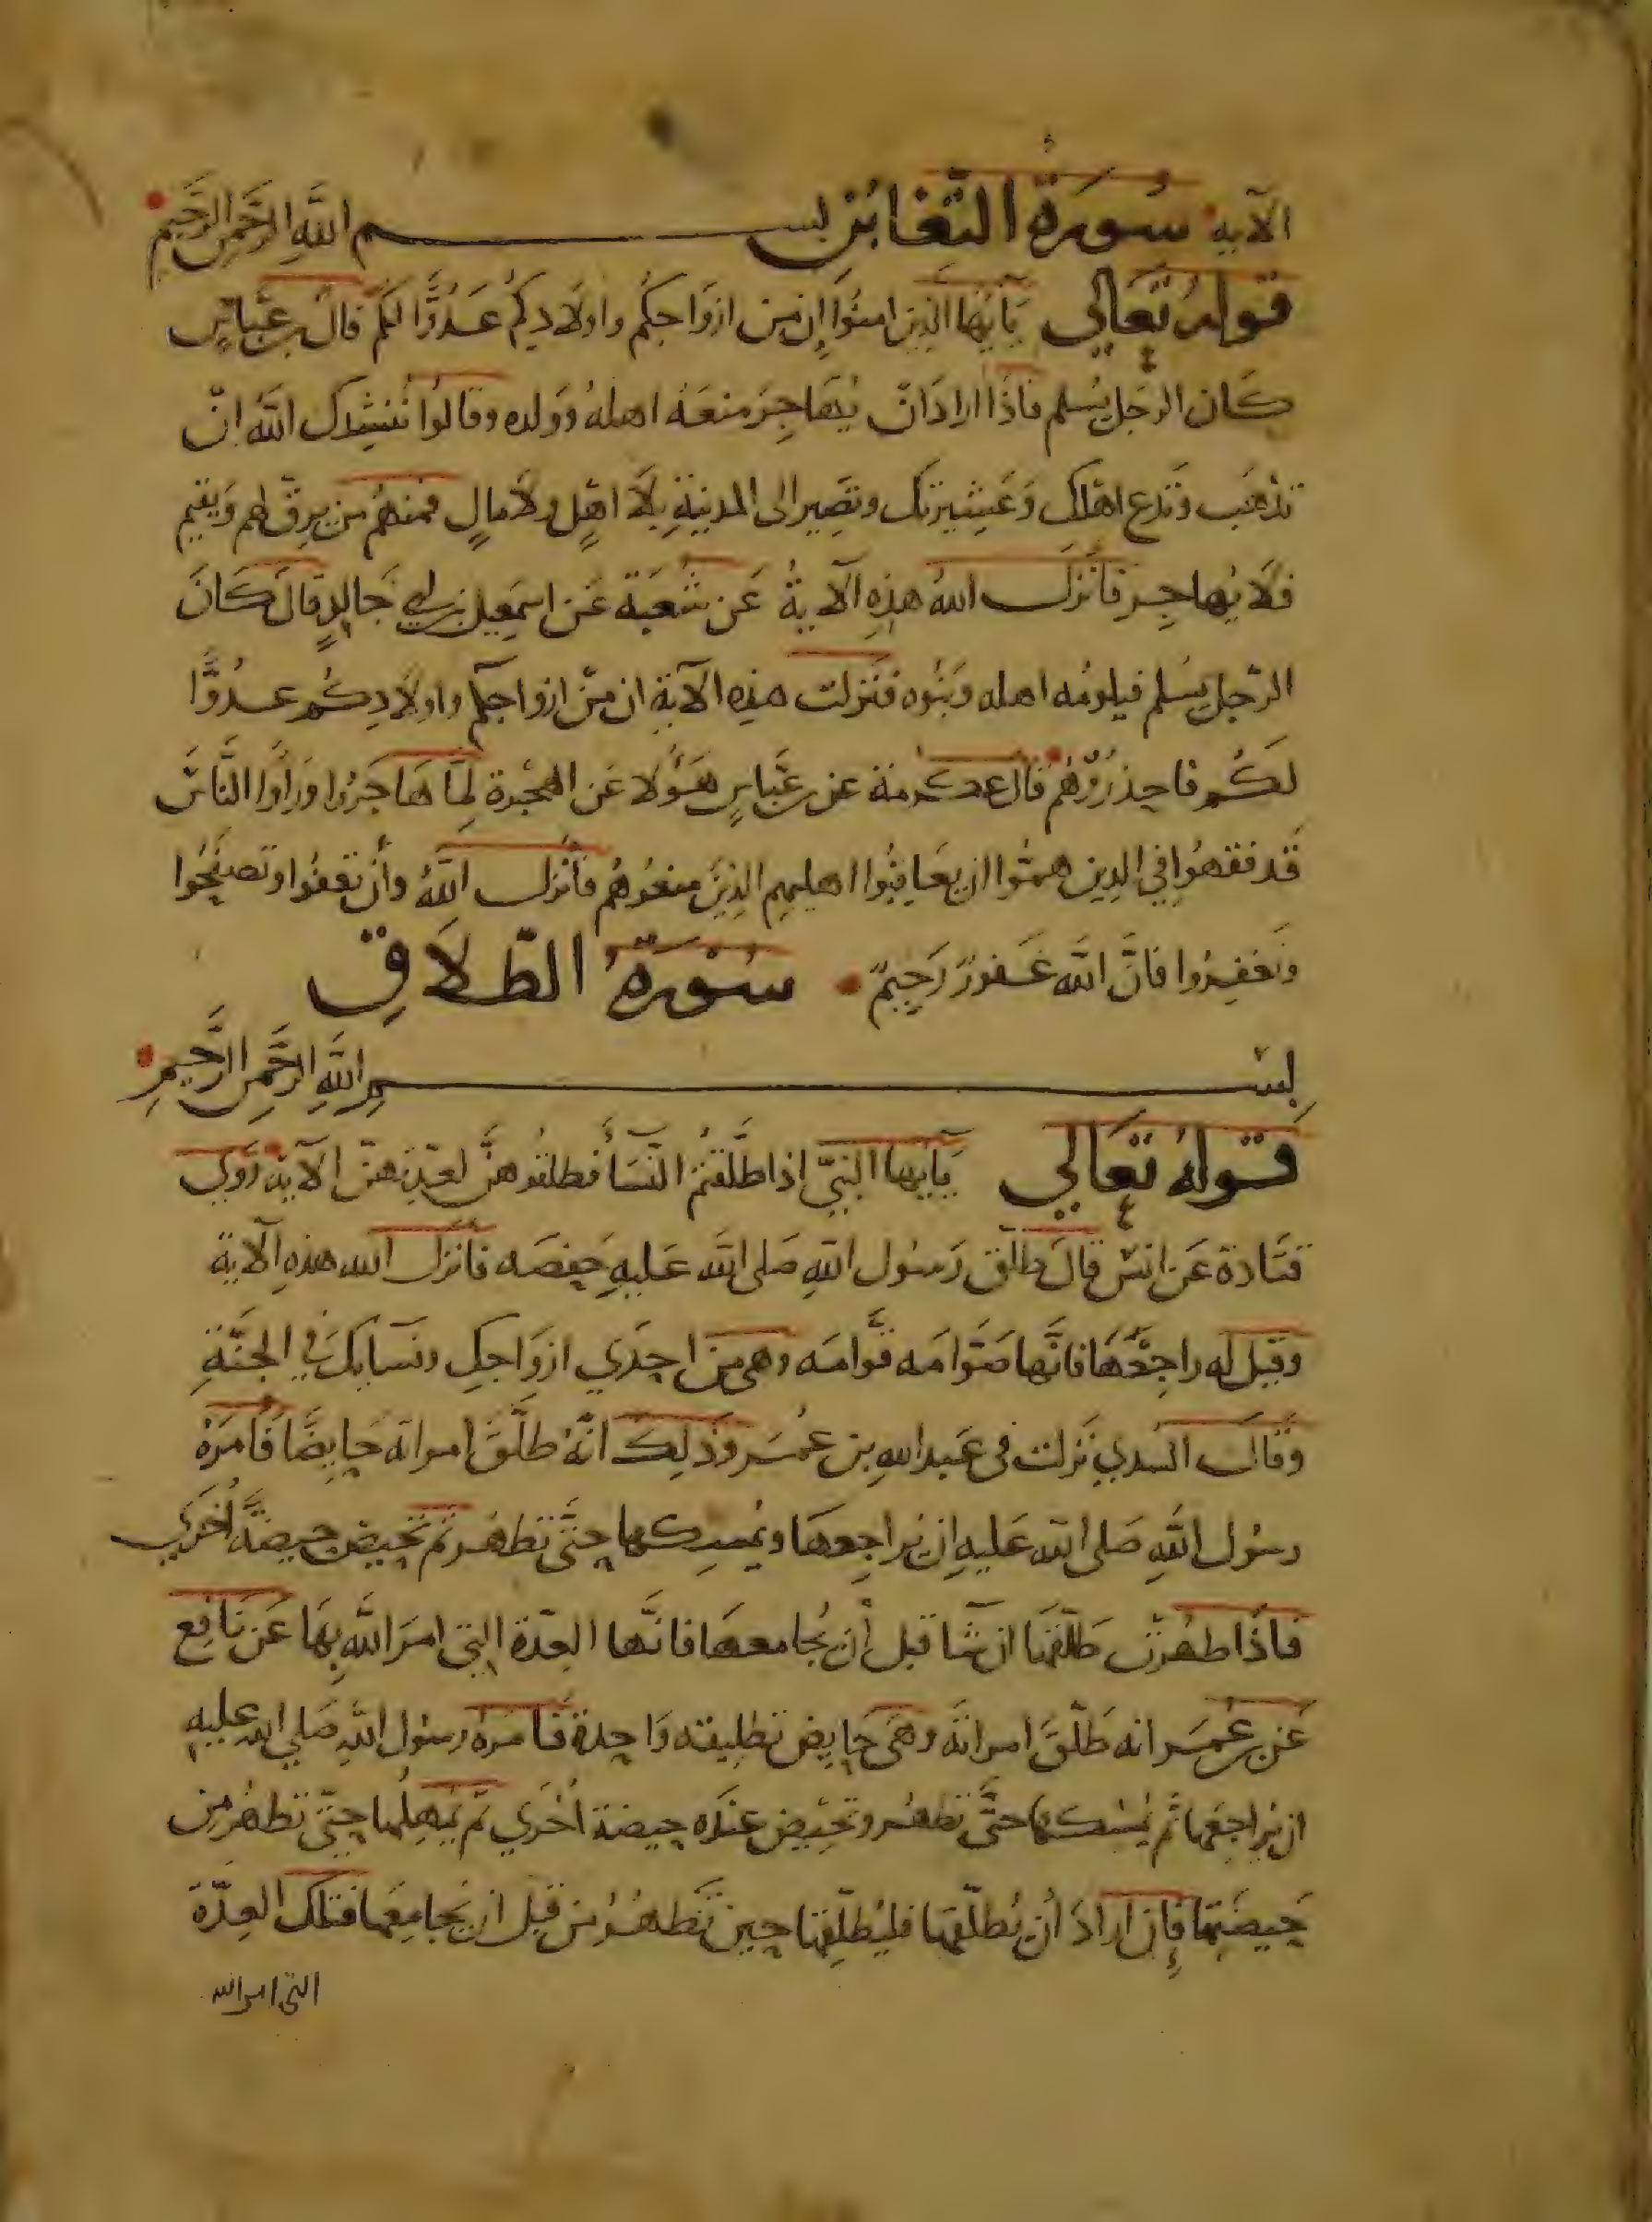 الآية سُورَةُ التَّغَابُنِ بســـــم اللَّهِ الرَّحْمَنِ الرَّحِيمِ
قوله تَعَالي يَآيُّها الَّذِين امنُوا إِن من ازوَاجكُم واولَادِكُم عَدُوًّا لكُم قال بن عبّاسٍ
كَان الرجَل يُسلم فاذَا ارادَ انّ يُهَاجِرَ منعَهُ اهلهُ وَوَلده وقالوُا نُنشِدك اللهَ انّ
تذهَب وَتدع اهلك وَعَشِيرتك وتصَير الى المدينةِ بلَا اهْلٍ ولَا مالٍ فمنهُم من يرقّ لهم وَيقيم
فلَا يُهاجِر فَأنزَل اللهُ هذِهِ الآيةُ عَن شُعبَة عَن اسمَعِيل بن ابي خَالِدٍ قالَ كَانَ
الرّجل يسُلم فيلومُه اهله وَبَنُوه فنَزلت هذِه الآية ان من ازواجكم واولادِكُم عدُوًّا
لكُم فاحذرُوهُم قال عكرمَة عن بن عبَّاسٍ هَؤُلا عَن الهجْرة لمَّا هَاجَرُوا وَرَأوُا النَّاسَ
قَد فقهُوا في الدِين همُّوا ان يعَاقبُوا اهليهم الذِينَ منعُوهُم فأنْزل اللَّهُ وأن تعفُوا وتصفَحُوا
وتغفِرُوا فانَّ اللَّه غَفورٌ رَحِيمٌ سُورَةُ الطّلَاقِ
بِســـــم اللَّهِ الرَّحْمَنِ الرَّحِيمِ
قوله تَعَالي يَآيها النبيّ اذا طلّقتُم النّسَآ فطلقُوهنَّ لعدّتهنّ الآية رَوَي
قتَادة عَن انسٍ قالَ طلّق رَسُول اللهِ صَلى اللَّه عَليهِ حَفصَه فأنزَل الله هذهِ الآية
وقيل له راجِعْهَا فانَّها صَوّامَه قَوّامَه وهي من احدَي ازوَاجك ونسَآيكَ في الجنَّةِ
وقَالَ السّدي نَزلت في عَبد اللهِ بن عُمَر وَذلِك انّهُ طلَّقَ امراته حَايِضًا فَأمرَهُ
رسُول اللَّهِ صَلى اللَّه عَليهِ ان يراجِعهَا ويُمسِكها حتَّى تطهُر ثم تحيض حيضَةً اُخرَي
فاذَا طهُرت طَلّقهَا ان شَآ قبل أن يُجامعهَا فانَّها العِدّة التي امرَ اللَّه بهَا عَن نَافِع
عَن بن عُمَر انه طَلّقَ امراتَه وهيَ حَايِض تطليقه وَاحِدة فأمرهُ رسُول اللَّهِ صَلي الله عليهِ
ان يُراجعَها ثم يُمسكها حتَّى تطهُر وتحيض عندَه حيضة اُخرَي ثم يُمهِلُها حتّى تطهُر من
حَيضَتِها فإن ارادَ اُن يُطلّقهَا فليُطلّقهَا حِين تَطهُرُ من قبل ان يُجامعَها فتلك العِدّة
التي امر الله